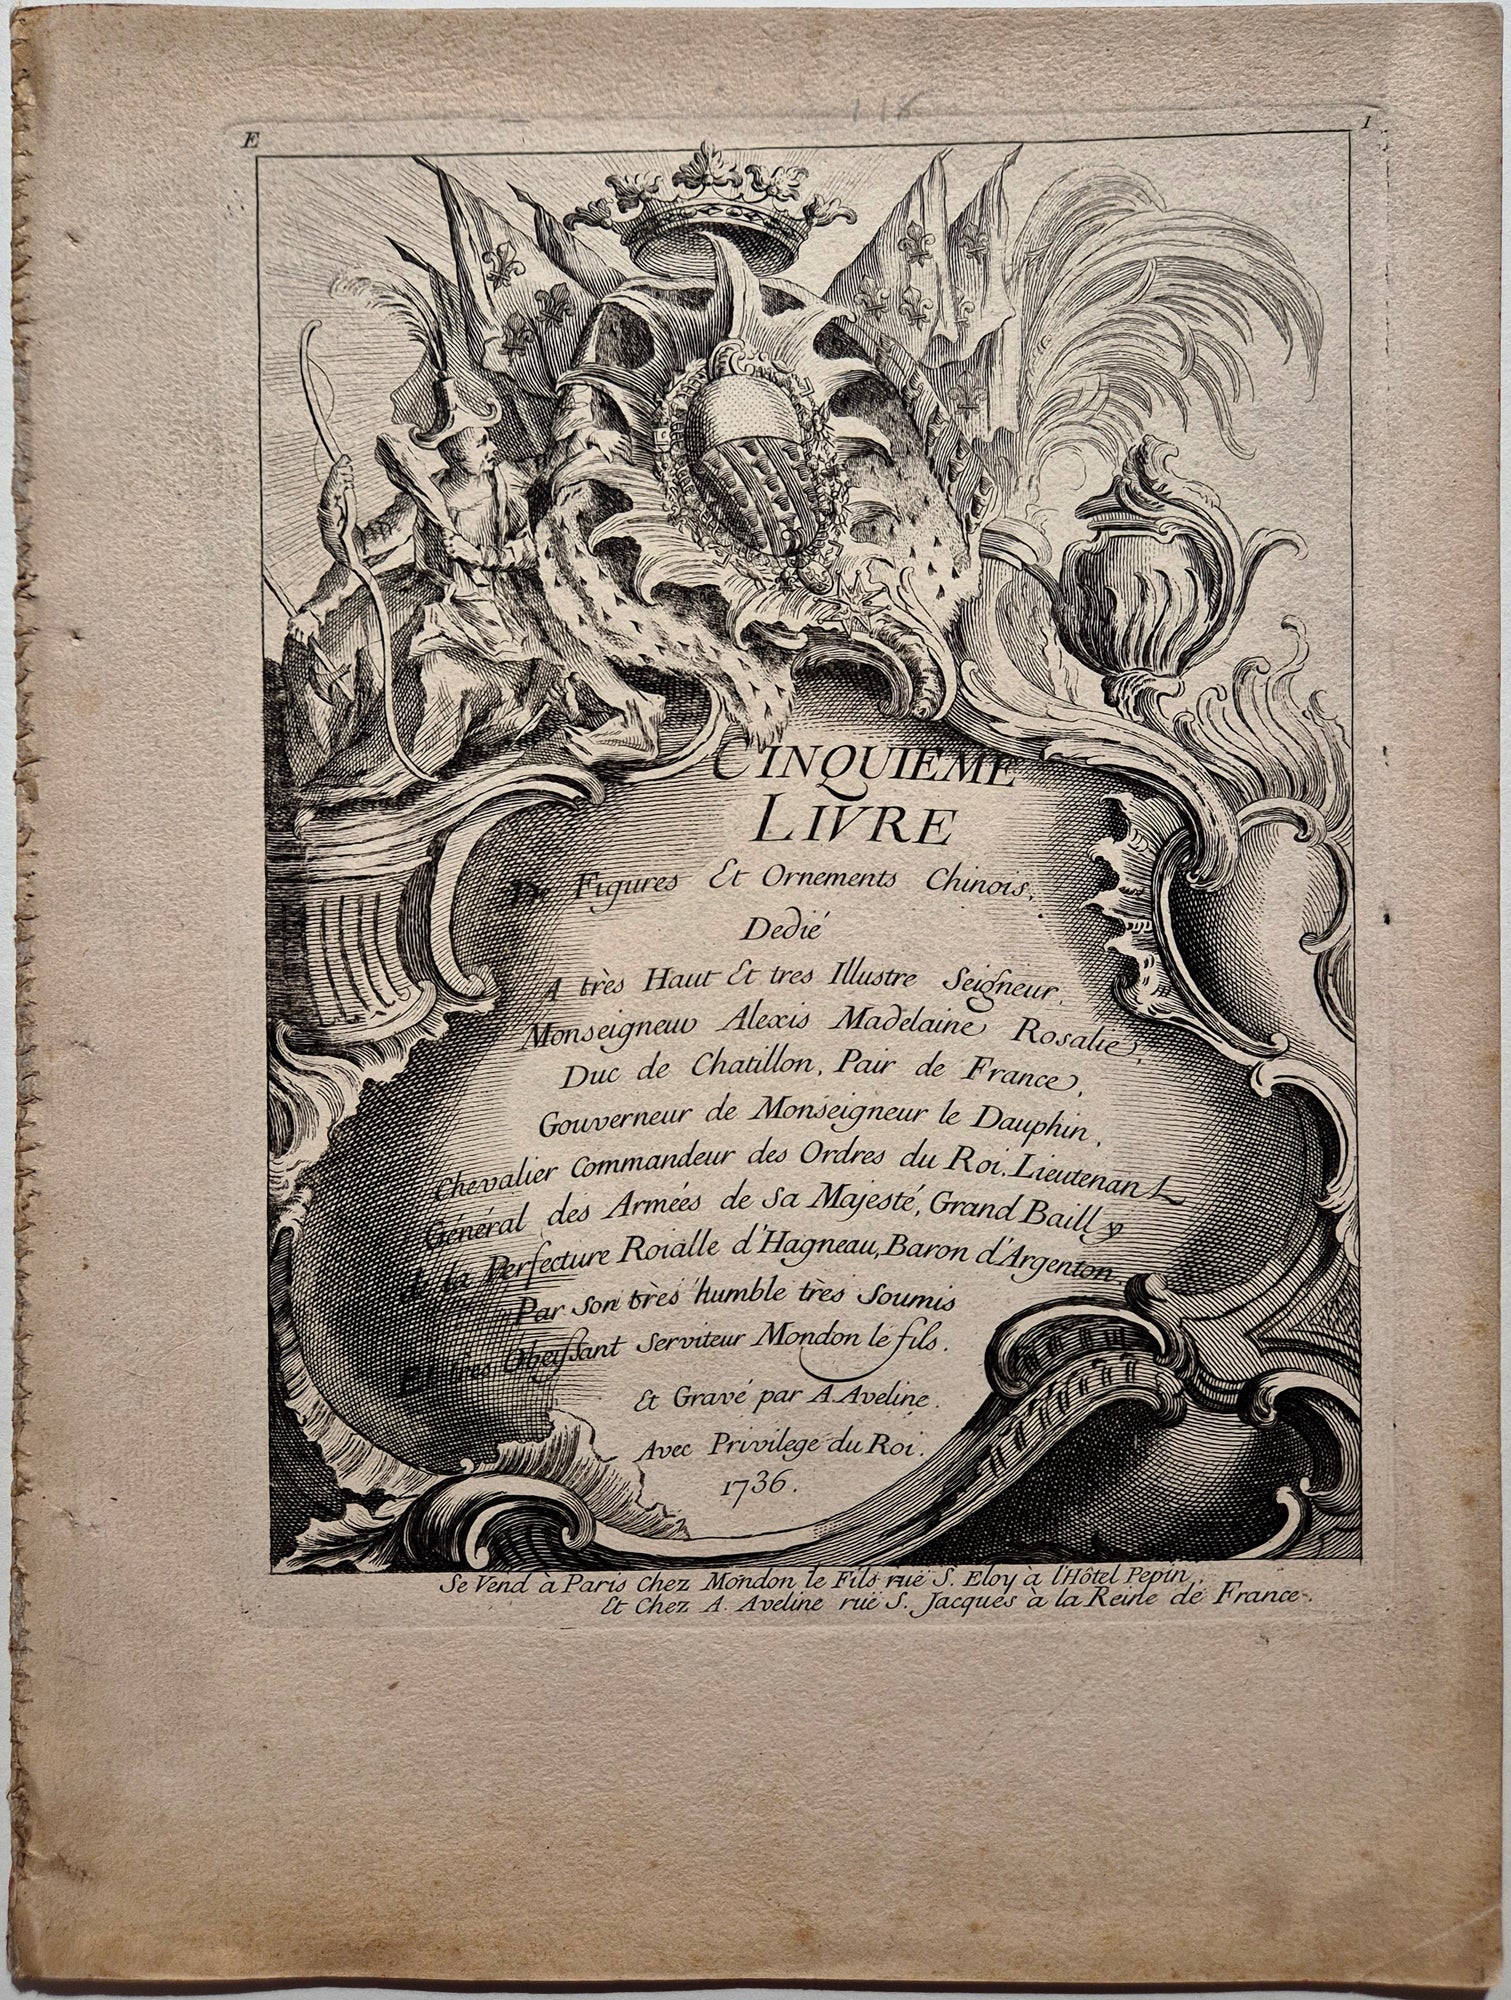 E 1
CINQUIEME
LIVRE
De Figures Et Ornements Chinois.
Dedié
A très Haut Et tres Illustre Seigneur,
Monseigneur Alexis Madelaine Rosalie,
Duc de Chatillon, Pair de France,
Gouverneur de Monseigneur le Dauphin,
Chevalier Commandeur des Ordres du Roi, Lieutenant
Général des Armées de Sa Majesté, Grand Bailly
de la Perfecture Roialle d'Hagneau, Baron d'Argenton
Par Son très humble très Soumis
Et très Obeissant Serviteur Mondon le fils.
Et Gravé par A. Aveline.
Avec Privilege du Roi.
1736.
Se Vend à Paris Chez Mondon le Fils ruë S. Eloy à l'Hôtel Pepin,
Et Chez A. Aveline ruë S. Jacques à la Reine de France.